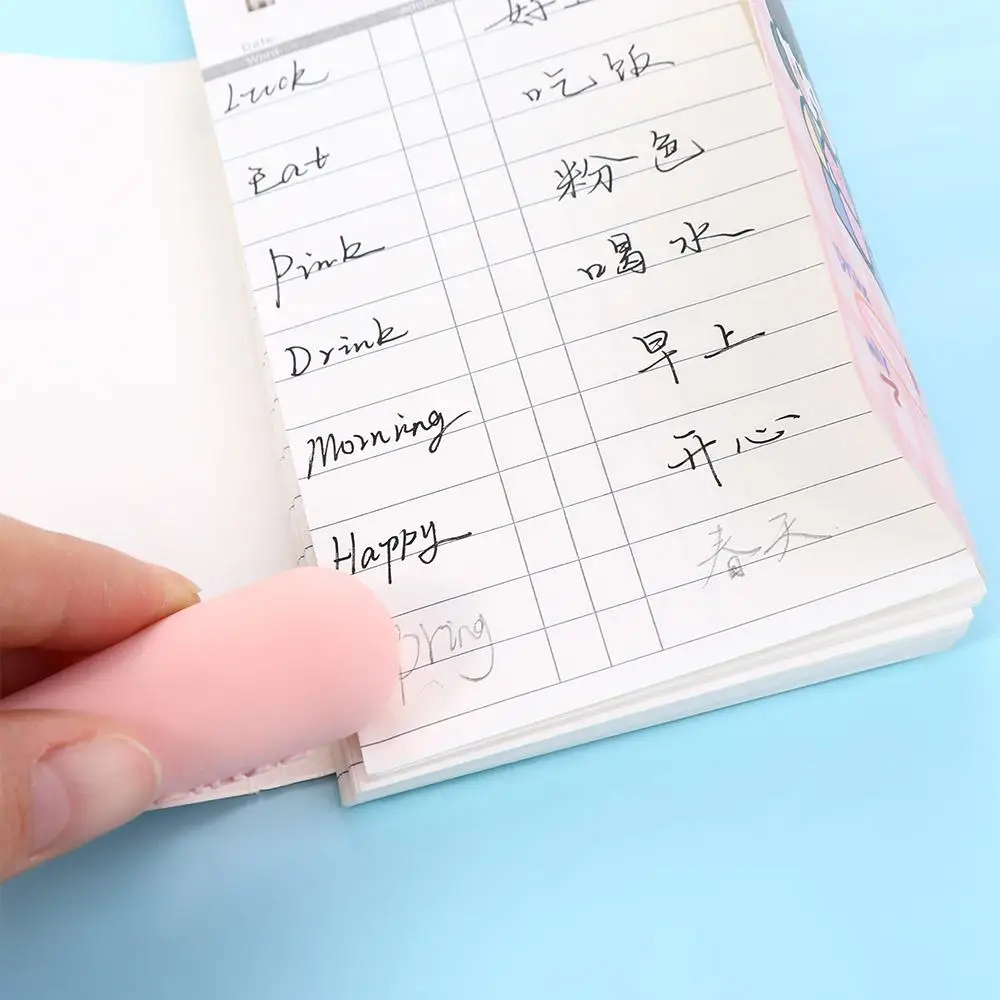 Date
Word
Luck
吃饭
Eat
粉色
Pink
喝水
Drink
早上
Morning
开心
Happy
春天
pring